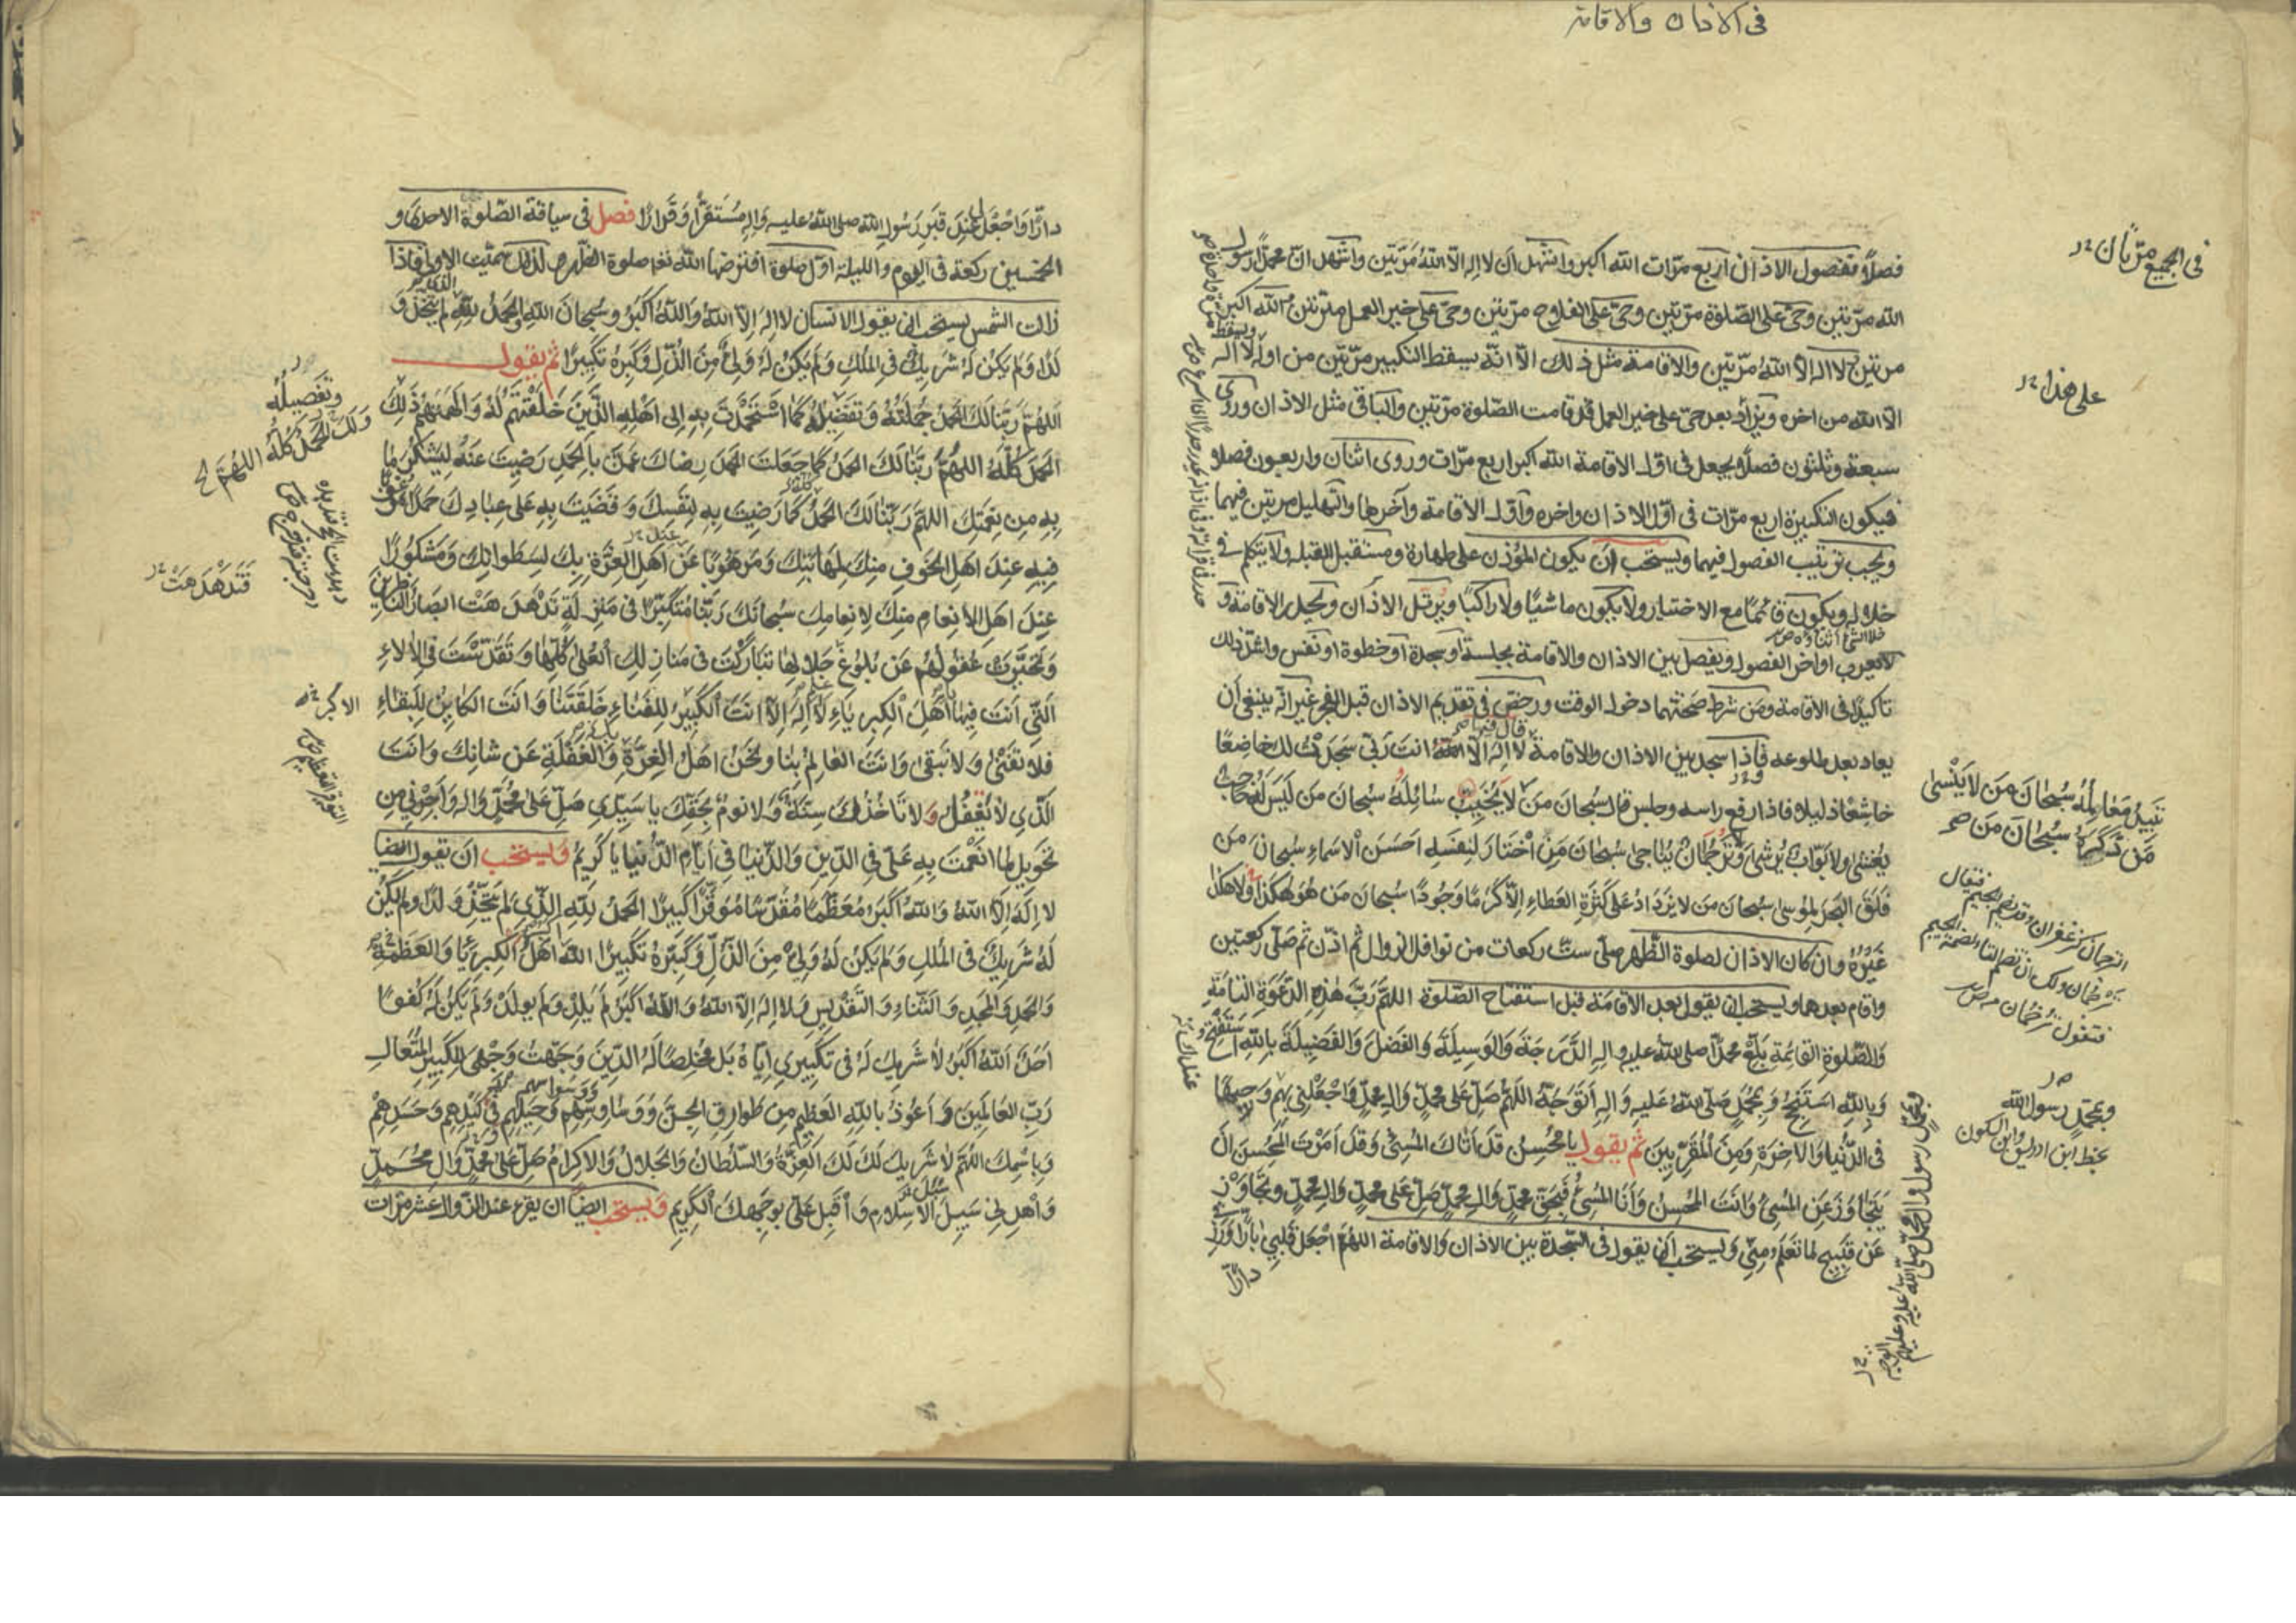 في الاذان والاقامة
فصلاً وفصول الاذان اربع مرّات الله اكبر واشهد ان لا اله الا الله مرّتين واشهد انّ محمداً رسول
الله مرّتين وحيّ على الصّلوة مرّتين وحيّ على الفلاح مرّتين وحيّ على خير العمل مرّتين الله اكبر
مرتين لا اله الا الله مرّتين والاقامة مثل ذلك الّا انّه يسقط التكبير مرّتين من اوله ولا اله
الّا الله من اخره ويزاد بعد حيّ على خير العمل قد قامت الصّلوة مرّتين والباقي مثل الاذان وروى
سبعة وثلثون فصلاً يجعل في اوّل الاقامة الله اكبر اربع مرّات وروى اثنان واربعون فصلا
فيكون التكبيرة اربع مرّات في اوّل الاذان واخره واوّل الاقامة وآخرها والتهليل مرتين فيهما
ويجب ترتيب الفصول فيهما ويستحب ان يكون المؤذن على طهارة ومستقبل القبلة ولا يتكلم في
خلاله ويكون قائماً مع الاختيار ولا يكون ماشيًا ولا راكبًا ويرتّل الاذان ويحدر الاقامة و
لا يعرب اواخر الفصول ويفصل بين الاذان والاقامة بجلسة او سجدة او خطوة او نفس واشدّ ذلك
تاكيدًا في الاقامة ومن شرط صحّتهما دخول الوقت ورخّص في تقديم الاذان قبل الفجر غير انّه ينبغي ان
يعاد بعد طلوعه فاذا سجد بين الاذان والاقامة قال فيها لا اله الّا انت ربّي سجدت لك خاضعًا
خاشعًا ذليلا فاذا رفع راسه وجلس قال سبحان من لا يُخيّب سائله سبحان من ليس له حاجب
يغشى ولا بوّاب يرشى ولا ترجمان يناجى سبحان من اختار لنفسه احسن الاسماء سبحان من
فلق البحر لموسى سبحان من لا يزداد على كثرة العطاء الّا كرمًا وجودًا سبحان من هو هكذا ولا هكذا
غيره وان كان الاذان لصلوة الظهر صلّى ستّ ركعات من نوافل الزوال ثم اذّن ثم صلّى ركعتين
واقام بعدهما ويستحب ان يقول بعد الاقامة قبل استفتاح الصّلوة اللهمّ ربّ هذه الدعوة التامّة
والصّلوة القائمة بلّغ محمّدًا صلى الله عليه واله الدّرجة والوسيلة والفضل والفضيلة بالله استفتح
وبالله استنجح وبمحمّد صلّى الله عليه واله اتوجّه اللهمّ صلّ على محمّد وال محمّد واجعلني بهم وجيهًا
في الدّنيا والاخرة ومن المقرّبين ثم يقول يا محسن قد اتاك المسئ وقد امرت المحسن ان
يتجاوز عن المسئ وانت المحسن وانا المسئ فبحق محمّد وال محمّد صلّ على محمّد وال محمّد وتجاوز
عن قبيح ما تعلم منّي ويستحب ان يقول في السّجدة بين الاذان والاقامة اللهمّ اجعل قلبي بارًّا ورزقي
دارًّا
في الجميع مرّتان
على هذا
تبيد معالمه سبحان من لا ينسى
من ذكره سبحان من
وبمحمّد رسول الله
بخط ابن ادريس وابن السكون
دارًّا واجعل لي عند قبر رسول الله صلى الله عليه واله مستقرًّا وقرارًا فصل في سياقة الصّلوة الاحدى و
الخمسين ركعة في اليوم والليلة اوّل صلوة افترضها الله تعالى صلوة الظهر ولذلك سمّيت الاولى فاذا
زالت الشمس يستحب ان يقول الانسان لا اله الّا الله والله اكبر وسبحان الله والحمد لله الذي لم يتّخذ و
لدًا ولم يكن له شريك في الملك ولم يكن له وليّ من الذّل وكبّره تكبيرًا ثم يقول
اللهمّ ربّنا لك الحمد جملته وتفضيله كما استحمدت به الى اهله الذين خلقتهم له والهمتهم ذلك
الحمد كلّه اللهمّ ربّنا لك الحمد كما جعلت الحمد رضاك عمّن بالحمد رضيت عنه ليشكر ما
به من نعمتك اللهمّ ربّنا لك الحمد كما رضيت به لنفسك وقضيت به على عبادك حمدًا مرغوبًا
فيه عند اهل الخوف منك لمهابتك ومرهوبًا عن اهل العزّة بك لسطواتك ومشكورًا
عند اهل الانعام منك لانعامك سبحانك ربّنا متكبّرًا في منزلة تدهدهت ابصار النّاظرين
وتحيّرت عقولهم عن بلوغ جلالها تباركت في منازلك العلى كلّها وتقدّست في الالاء
التي انت فيها اهل الكبرياء لا اله الّا انت الكبير للفناء خلقتنا وانت الكاين للبقاء
فلا تفنى ولا نبقى وانت العالم بنا ونحن اهل الغرّة والغفلة عن شانك وانت
الّذي لا تغفل ولا تاخذك سنة ولا نوم بحقّك يا سيّدي صلّ على محمّد واله واجرني من
تحويل ما انعمت به عليّ في الدّين والدّنيا في ايّام الدّنيا يا كريم ويستحب ان تقول ايضا
لا اله الّا الله والله اكبر معظّمًا مقدّسًا موقّرًا كبيرًا الحمد لله الذي لم يتّخذ ولدًا ولم يكن
له شريك في الملك ولم يكن له وليّ من الذّل وكبّره تكبيرًا الله اهل الكبرياء والعظمة
والحمد والمجد والثّناء والتّقديس ولا اله الّا الله والله اكبر لم يلد ولم يولد ولم يكن له كفوًا
احد الله اكبر لا شريك له في تكبيري ايّاه بل مخلصًا له الدّين وجّهت وجهي للكبير المتعال
ربّ العالمين واعوذ بالله العظيم من طوارق الجنّ ووساوسهم وحيلهم وكيدهم وحسدهم
وباسمك اللهمّ لا شريك لك لك العزّة والسّلطان والجلال والاكرام صلّ على محمّد وال محمّد
واهدني سبيل الاسلام واقبل عليّ بوجهك الكريم ويستحب ايضًا ان يقرء عند الزّوال عشر مرّات
وتفصيله
ولك الحمد كلّه اللهمّ
قتدهدهت
الاكبر